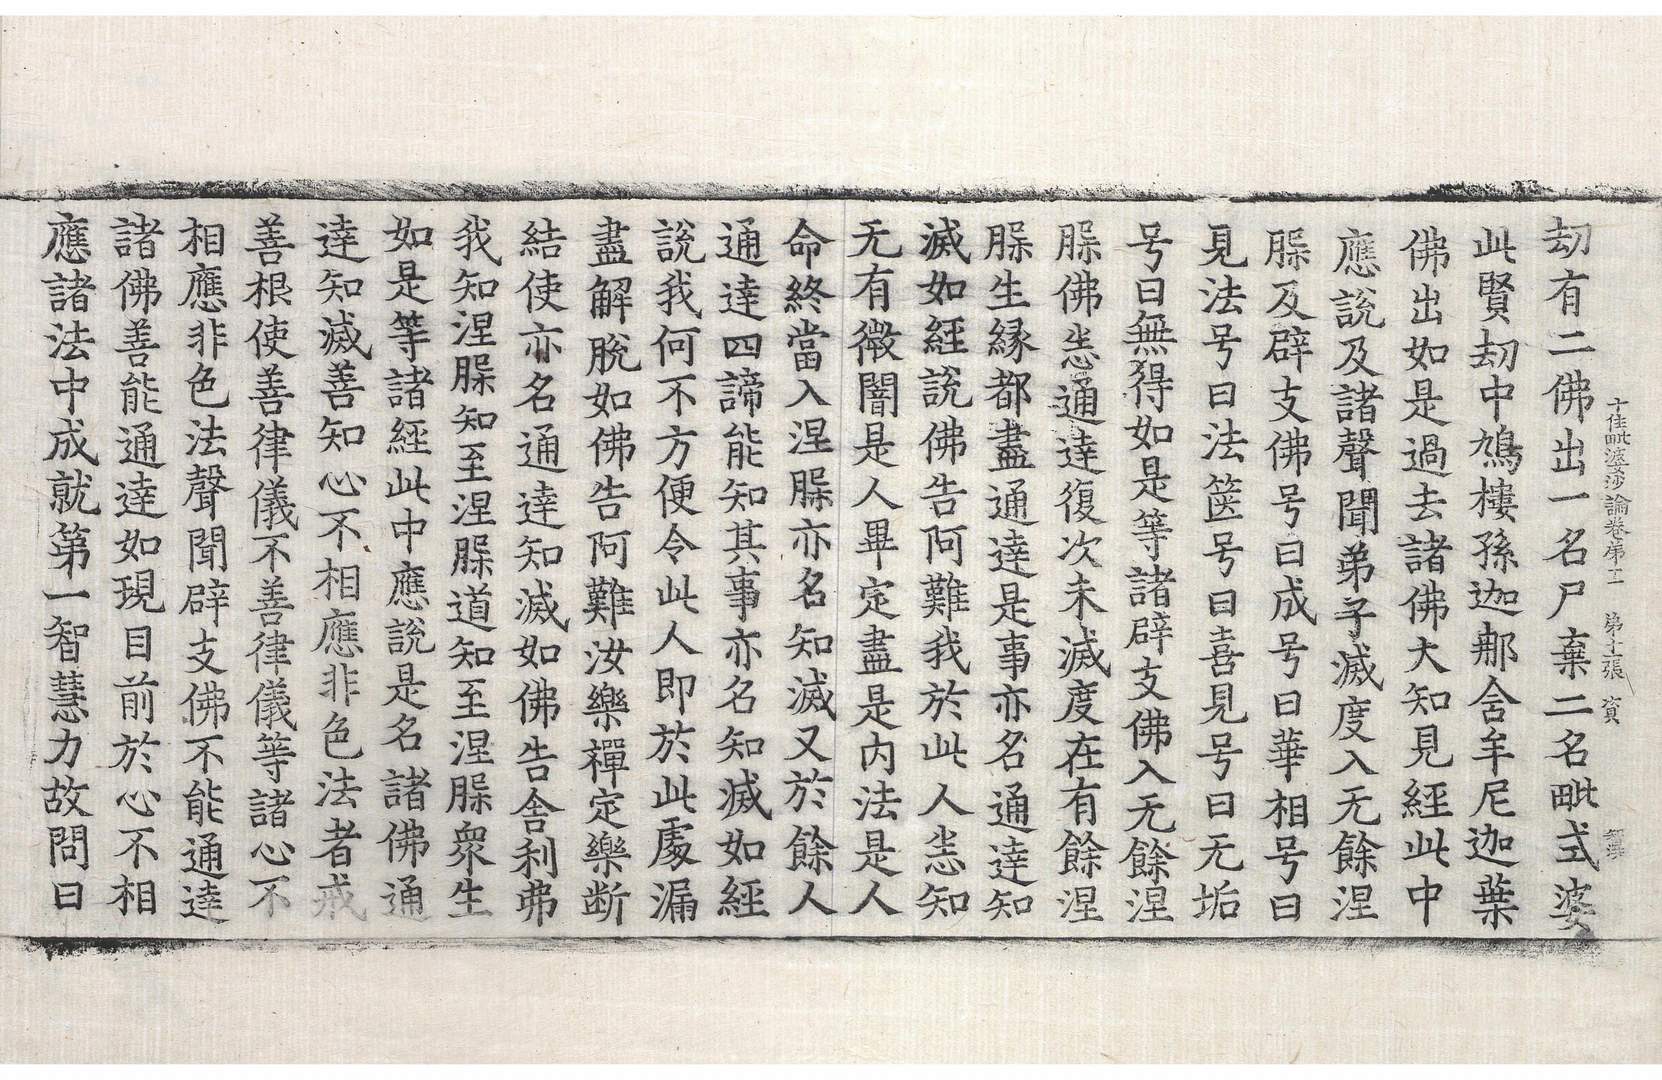 十住毗婆沙論卷第十一 第十張 賓
劫有二佛出一名尸棄二名毗式婆
此賢劫中鳩樓孫迦郍舍牟尼迦葉
佛出如是過去諸佛大知見經此中
應說及諸聲聞弟子滅度入无餘涅
䏶及辟支佛号曰成号曰華相号曰
見法号曰法篋号曰喜見号曰无垢
号曰無得如是等諸辟支佛入无餘涅
䏶佛悉通達復次未滅度在有餘涅
䏶生緣都盡通達是事亦名通達知
滅如經說佛告阿難我於此人悉知
无有微闇是人畢定盡是内法是人
命終當入涅䏶亦名知滅又於餘人
通達四諦能知其事亦名知滅如經
說我何不方便令此人即於此處漏
盡解脫如佛告阿難汝樂禪定樂断
結使亦名通達知滅如佛告舍利弗
我知涅䏶知至涅䏶道知至涅䏶衆生
如是等諸經此中應說是名諸佛通
達知滅善知心不相應非色法者戒
善根使善律儀不善律儀等諸心不
相應非色法聲聞辟支佛不能通達
諸佛善能通達如現目前於心不相
應諸法中成就第一智慧力故問曰